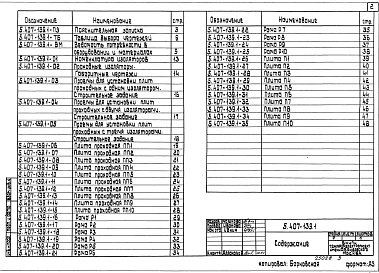 2
Обозначение Наименование Стр.
5.407-139.1-ПЗ Пояснительная записка 3
5.407-139.1-ТБ Таблица выбора чертежей 6
5.407-139.1-ВМ Ведомость потребности в
оборудовании и материалах 5
5.407-139.1-01 Номенклатура изоляторов 13
5.407-139.1-02 Проходные изоляторы.
Габаритные чертежи 14
5.407-139.1-03 Проемы для установки плит
проходных с одним изолятором.
Строительное задание 16
5.407-139.1-04 Проемы для установки плит
проходных с изоляторами.
Строительное задание 17
5.407-139.1-05 Проемы для установки плит
проходных с тремя изоляторами.
Строительное задание 18
5.407-139.1-06 Плита проходная ПП1 19
5.407-139.1-07 Плита проходная ПП2 20
5.407-139.1-08 Плита проходная ПП3 21
5.407-139.1-09 Плита проходная ПП4 22
5.407-139.1-10 Плита проходная ПП5 23
5.407-139.1-11 Плита проходная ПП6 24
5.407-139.1-12 Плита проходная ПП7 25
5.407-139.1-13 Плита проходная ПП8 26
5.407-139.1-14 Плита проходная ПП9 27
5.407-139.1-15 Плита проходная ПП10 28
5.407-139.1-16 Рама Р1 29
5.407-139.1-17 Рама Р2 30
5.407-139.1-18 Рама Р3 31
5.407-139.1-19 Рама Р4 32
5.407-139.1-20 Рама Р5 33
5.407-139.1-21 Рама Р6 34
Обозначение Наименование Стр.
5.407-139.1-22 Рама Р7 35
5.407-139.1-23 Рама Р8 36
5.407-139.1-24 Рама Р9 37
5.407-139.1-25 Рама Р10 38
5.407-139.1-26 Плита П1 39
5.407-139.1-27 Плита П2 40
5.407-139.1-28 Плита П3 41
5.407-139.1-29 Плита П4 42
5.407-139.1-30 Плита П5 43
5.407-139.1-31 Плита П6 44
5.407-139.1-32 Плита П7 45
5.407-139.1-33 Плита П8 46
5.407-139.1-34 Плита П9 47
5.407-139.1-35 Плита П10 48
5.407-139.1
Содержание
Копировал: Барковская формат А3